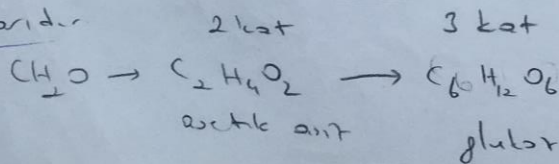 2 kat 3 kat
CH₂O → C₂H₄O₂ → C₆H₁₂O₆
asetik asit glukoz